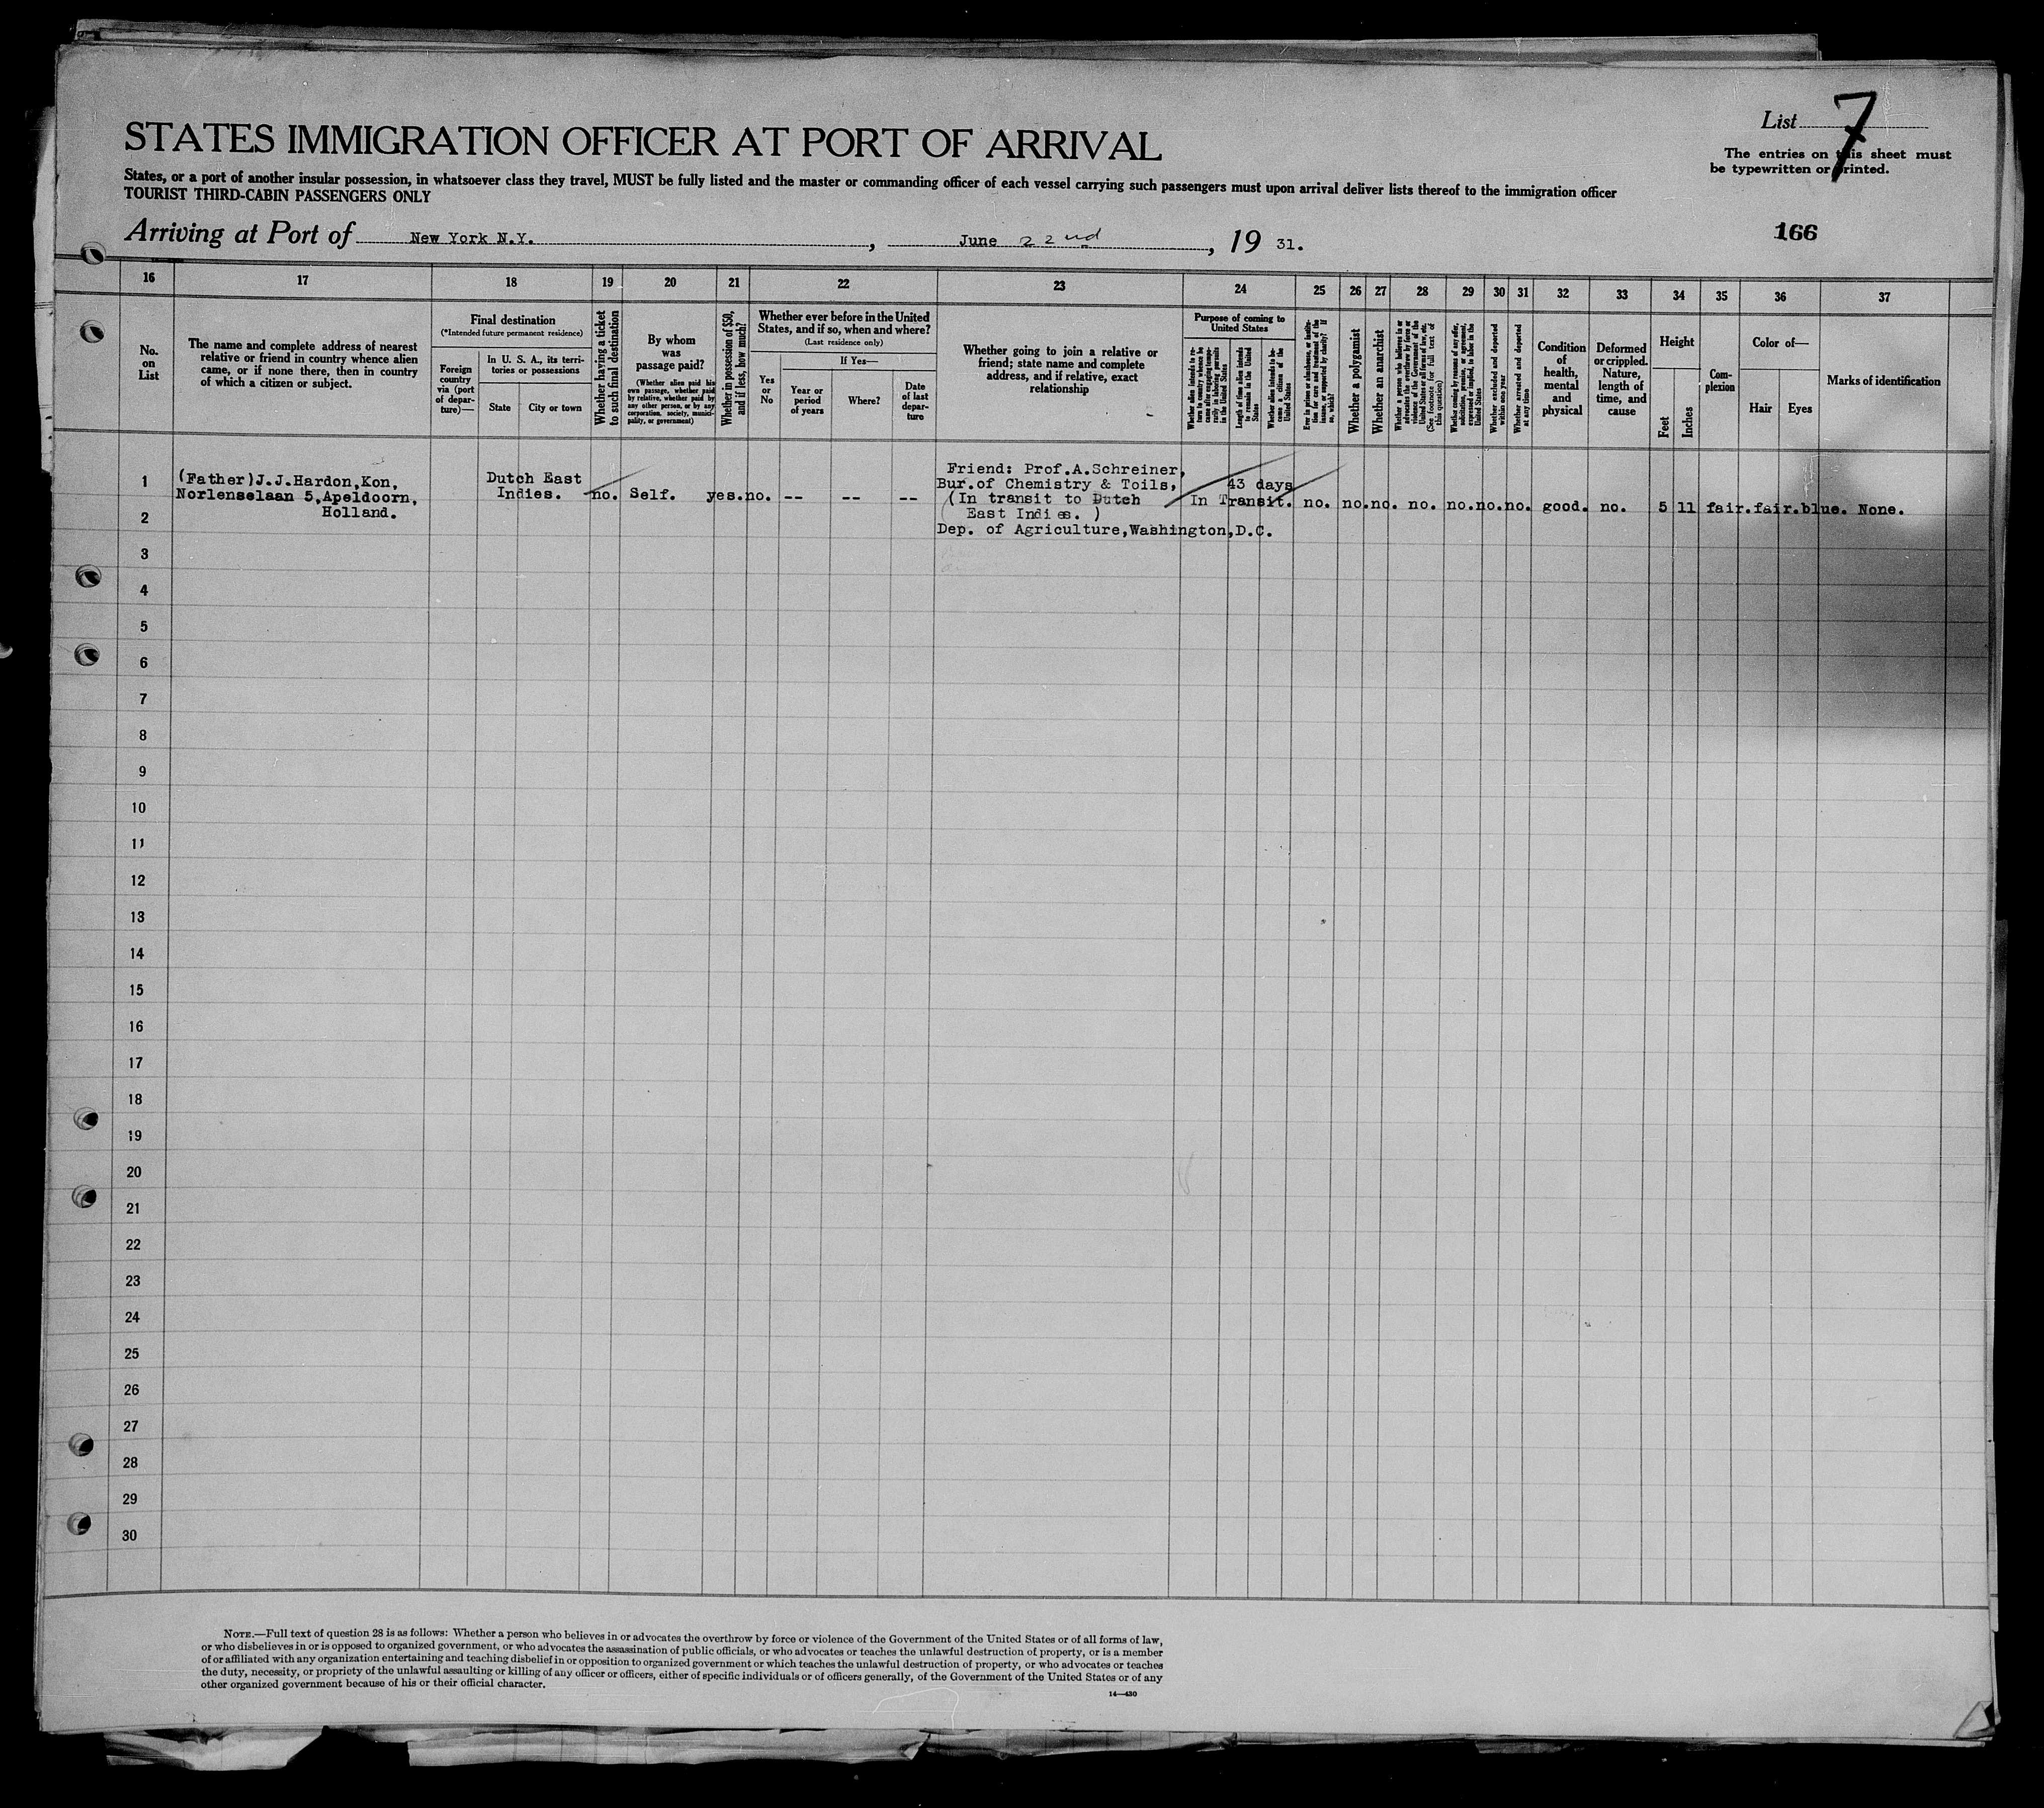 List 7
The entries on this sheet must
be typewritten or printed.
STATES IMMIGRATION OFFICER AT PORT OF ARRIVAL
States, or a port of another insular possession, in whatsoever class they travel, MUST be fully listed and the master or commanding officer of each vessel carrying such passengers must upon arrival deliver lists thereof to the immigration officer
TOURIST THIRD-CABIN PASSENGERS ONLY
Arriving at Port of New York N.Y. , June 22nd , 19 31.
166
16 17 18 19 20 21 22 23 24 25 26 27 28 29 30 31 32 33 34 35 36 37
No.
on
List
The name and complete address of nearest
relative or friend in country whence alien
came, or if none there, then in country
of which a citizen or subject.
Final destination
(*Intended future permanent residence)
Foreign
country
via (port
of depar-
ture)—
In U. S. A., its terri-
tories or possessions
State
City or town
Whether having a ticket
to such final destination
By whom
was
passage paid?
(Whether alien paid his
own passage, whether paid
by relative, whether paid by
any other person, or by any
corporation, society, munici-
pality, or government)
Whether in possession of $50,
and if less, how much?
Whether ever before in the United
States, and if so, when and where?
(Last residence only)
Yes
or
No
If Yes—
Year or
period
of years
Where?
Date
of last
depar-
ture
Whether going to join a relative or
friend; state name and complete
address, and if relative, exact
relationship
Purpose of coming to
United States
Whether alien intends to re-
turn to country whence he
came after engaging tempo-
rarily in laboring pursuits
in the United States
Length of time alien intends
to remain in the United
States
Whether alien intends to be-
come a citizen of the
United States
Ever in prison or almshouse, or institu-
tion for care and treatment of the
insane, or supported by charity? If
so, which?
Whether a polygamist
Whether an anarchist
Whether a person who believes in or
advocates the overthrow by force or
violence of the Government of the
United States or all forms of law, etc.
(See footnote for full text of
this question)
Whether coming by reason of any offer,
solicitation, promise, or agreement,
expressed or implied, to labor in the
United States
Whether excluded and deported
within one year
Whether arrested and deported
at any time
Condition
of
health,
mental
and
physical
Deformed
or crippled.
Nature,
length of
time, and
cause
Height
Feet
Inches
Com-
plexion
Color of—
Hair
Eyes
Marks of identification
1
(Father)J.J.Hardon,Kon,
Norlenselaan 5,Apeldoorn,
Holland.
Dutch East
Indies.
no. Self. yes.no. -- -- --
Friend: Prof.A.Schreiner,
Bur.of Chemistry & Toils,
(In transit to Dutch
East Indies. )
Dep. of Agriculture,Washington,D.C.
43 days
In Transit. no. no.no. no. no.no.no. good. no. 5 11 fair.fair.blue. None.
2
3
4
5
6
7
8
9
10
11
12
13
14
15
16
17
18
19
20
21
22
23
24
25
26
27
28
29
30
NOTE.—Full text of question 28 is as follows: Whether a person who believes in or advocates the overthrow by force or violence of the Government of the United States or of all forms of law,
or who disbelieves in or is opposed to organized government, or who advocates the assassination of public officials, or who advocates or teaches the unlawful destruction of property, or is a member
of or affiliated with any organization entertaining and teaching disbelief in or opposition to organized government or which teaches the unlawful destruction of property, or who advocates or teaches
the duty, necessity, or propriety of the unlawful assaulting or killing of any officer or officers, either of specific individuals or of officers generally, of the Government of the United States or of any
other organized government because of his or their official character.
14—430